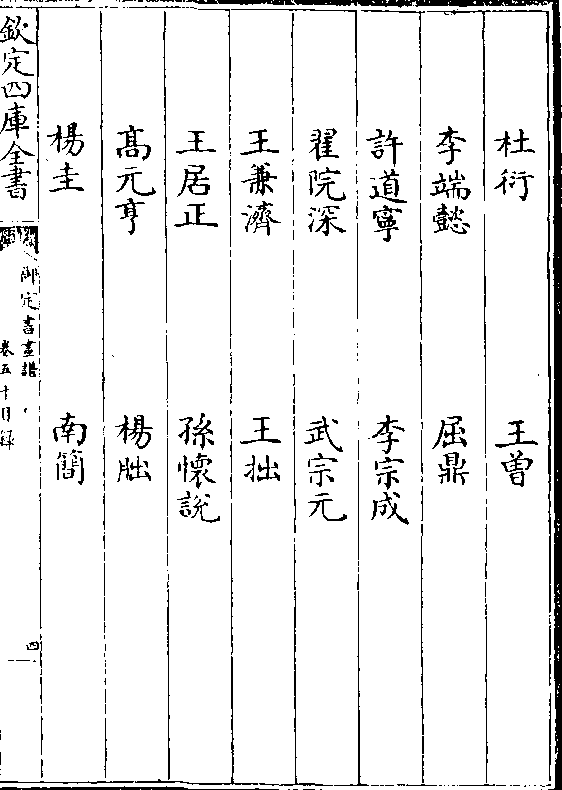 杜衍　王曽
李端懿　屈鼎
許道寧　李宗成
翟院深　武宗元
王兼濟　王拙
王居正　孫懷說
髙元亨　楊朏
楊圭　南簡
欽定四庫全書　御定書畫譜　卷五十目録　四